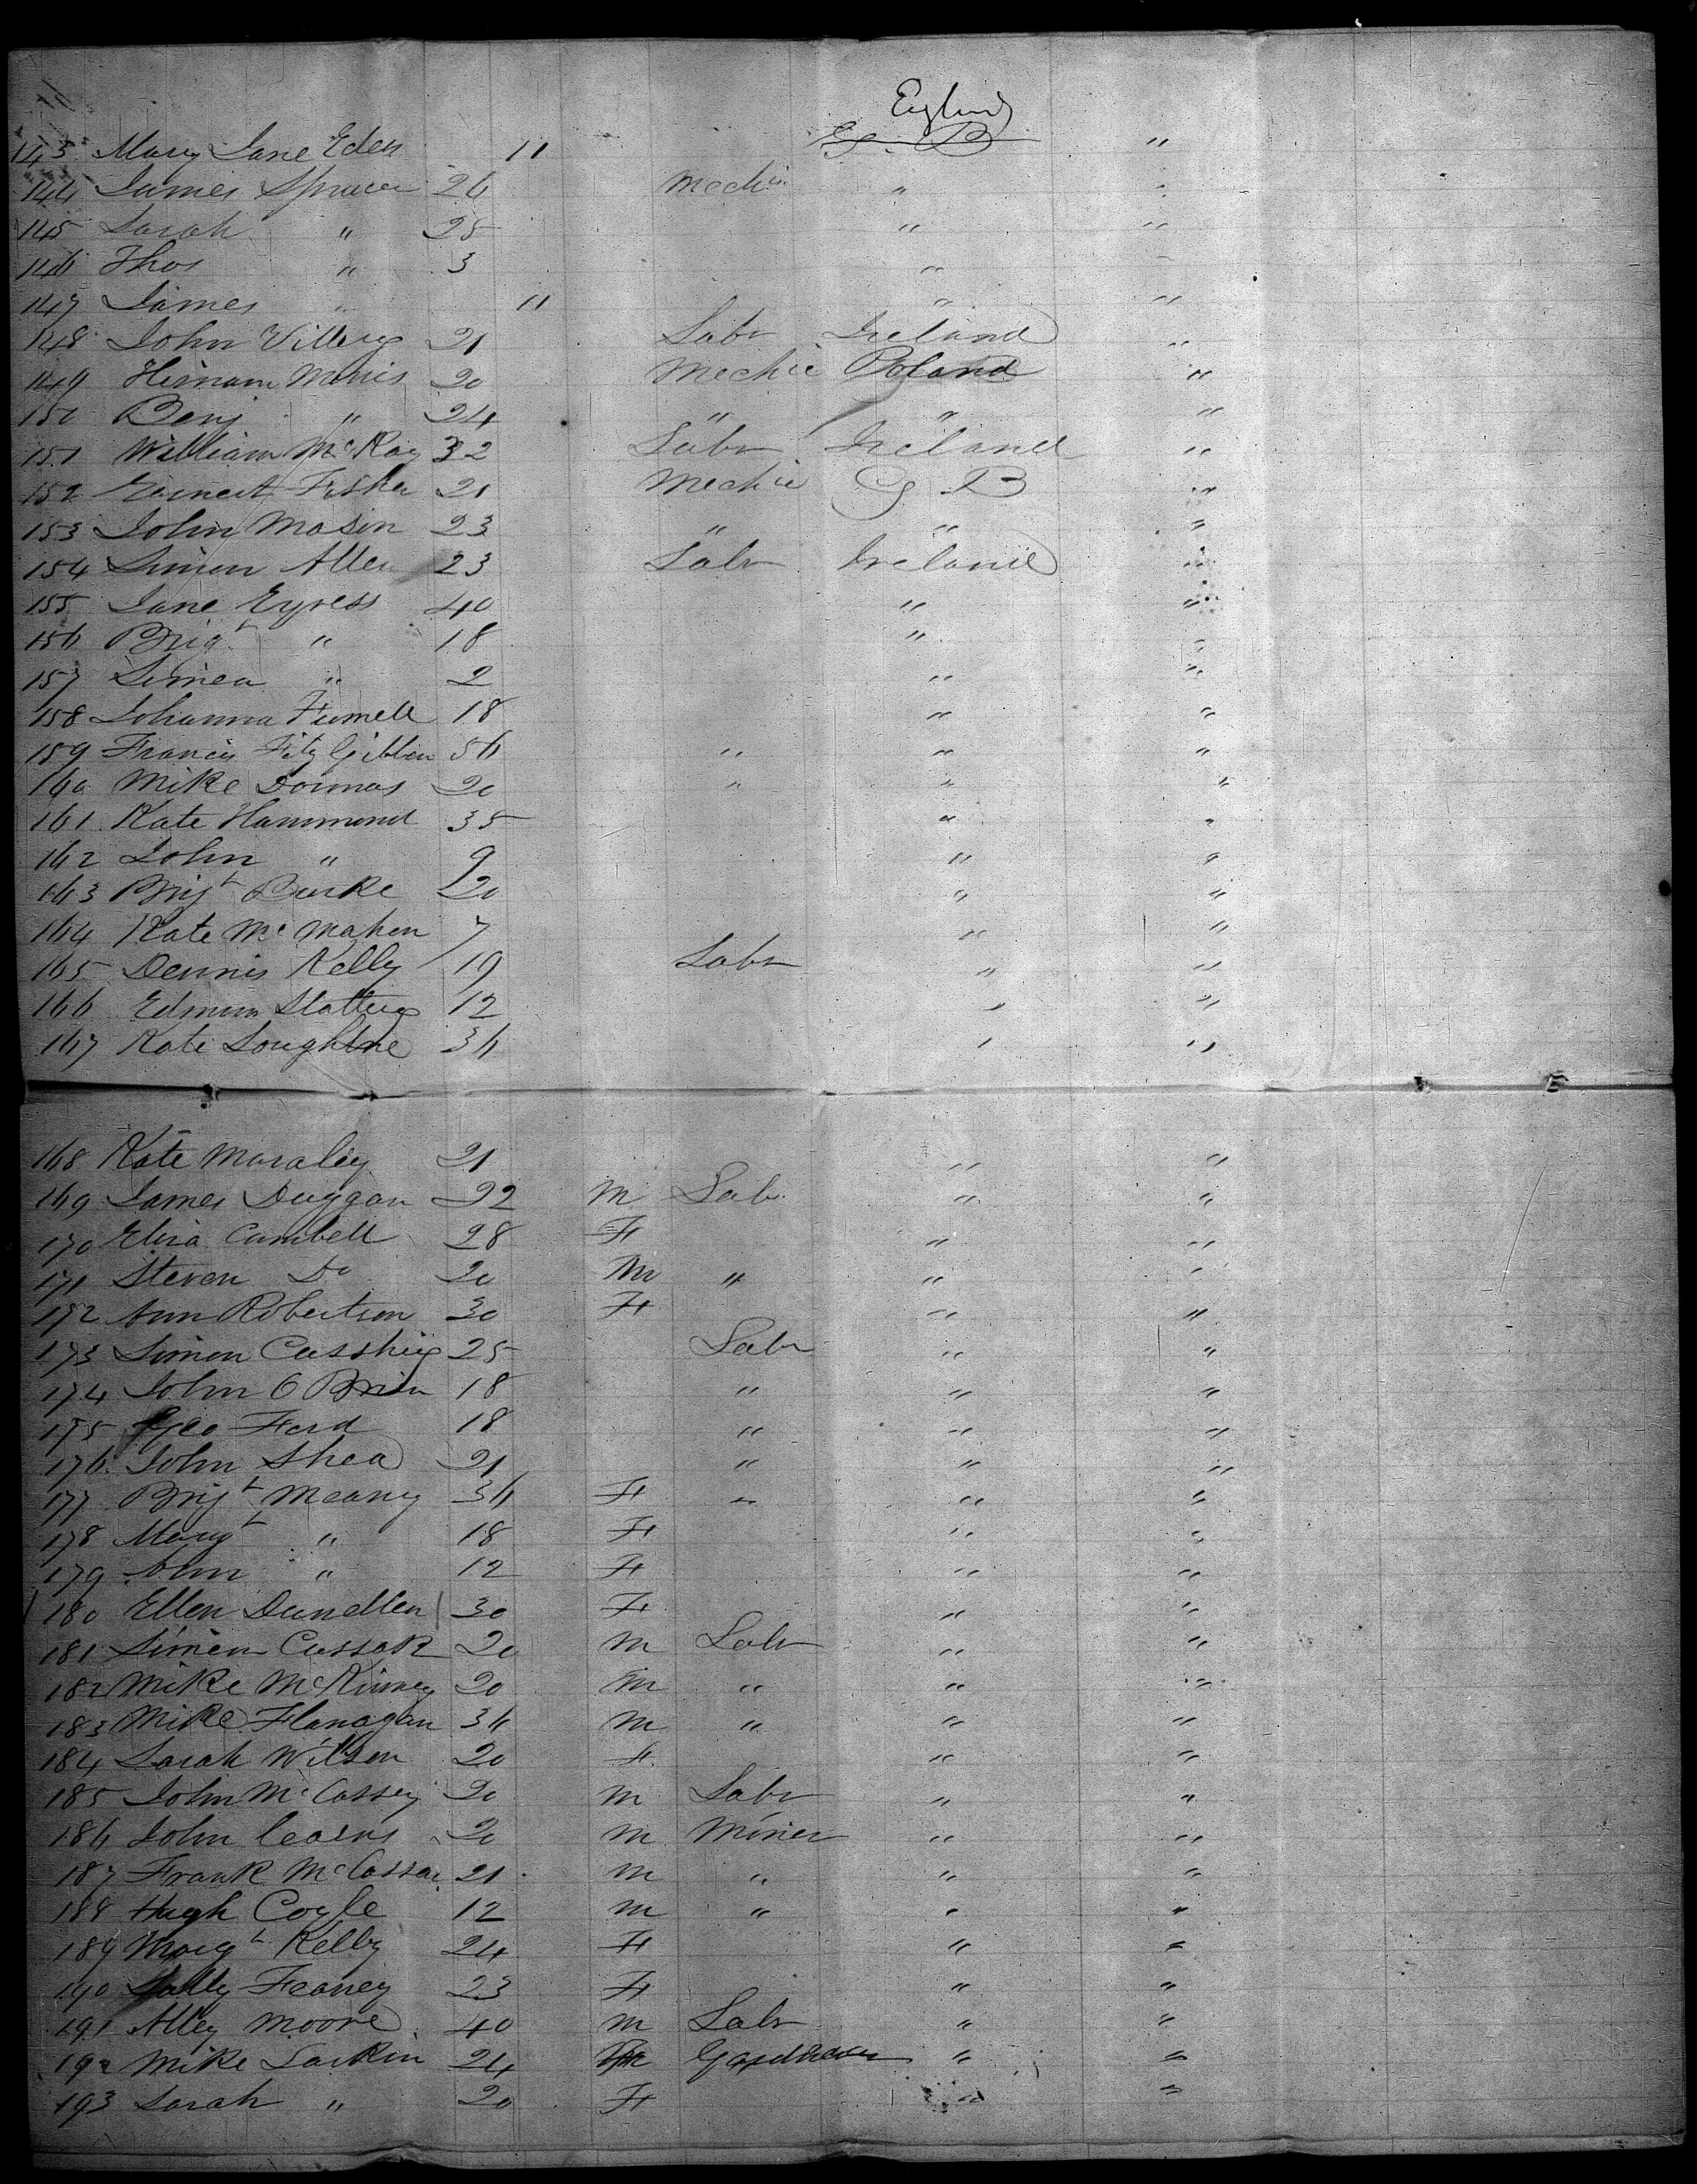 England
143 Mary Jane Eden 11 G. B "
144 James Spencer 26 Mechic " "
145 Sarah " 25 " "
146 Thos " 3 " "
147 James " 11 " "
148 John Villery 21 Labr Ireland "
149 Hirnam Morris 20 Mechic Poland "
150 Benj " 24 " " "
151 William McKay 32 Labr Ireland "
152 Earnest Fisher 21 Mechic G B "
153 John Mason 23 " " "
154 Simon Allen 23 Labr Ireland "
155 Jane Eyress 40 " "
156 Brigt " 18 " "
157 Simea " 2 " "
158 Johanna Furnell 18 " "
159 Francis Fitz Gibbon 56 " " "
160 Mike Dormas 20 " " "
161 Kate Hammond 35 " "
162 John " 9 " "
163 Brijt Burke 20 " "
164 Kate McMahon 7 " "
165 Dennis Kelly 19 Labr " "
166 Edmun Slattery 12 " "
167 Kate Loughlne 36 " "
168 Kate Moraley 21 " "
169 James Duggan 22 M Lab " "
170 Eliza Cambell 28 F " "
171 Steven Do 20 M " " "
172 Ann Robertson 30 F " "
173 Simon Casshig 25 Labr " "
174 John O Brien 18 " " "
175 Geo Ford 18 " " "
176 John Shea 21 " " "
177 Brijt Meany 36 F " " "
178 Margt " 18 F " "
179 Ann " 12 F " "
180 Ellen Dunellen 30 F " "
181 Simon Cussak 20 M Labr " "
182 Mike McKinney 20 M " " "
183 Mike Flanagan 36 M " " "
184 Sarah Wilson 20 F " "
185 John McCassey 20 M Labr " "
186 John Cearns 20 M Miner " "
187 Frank McCassar 21 M " " "
188 Hugh Coyle 12 M " " "
189 Margt Kelly 24 F " "
190 Sally Feaney 23 F " "
191 Alley Moore 40 M Labr " "
192 Mike Larkin 24 M Gardner " "
193 Sarah " 20 F " "